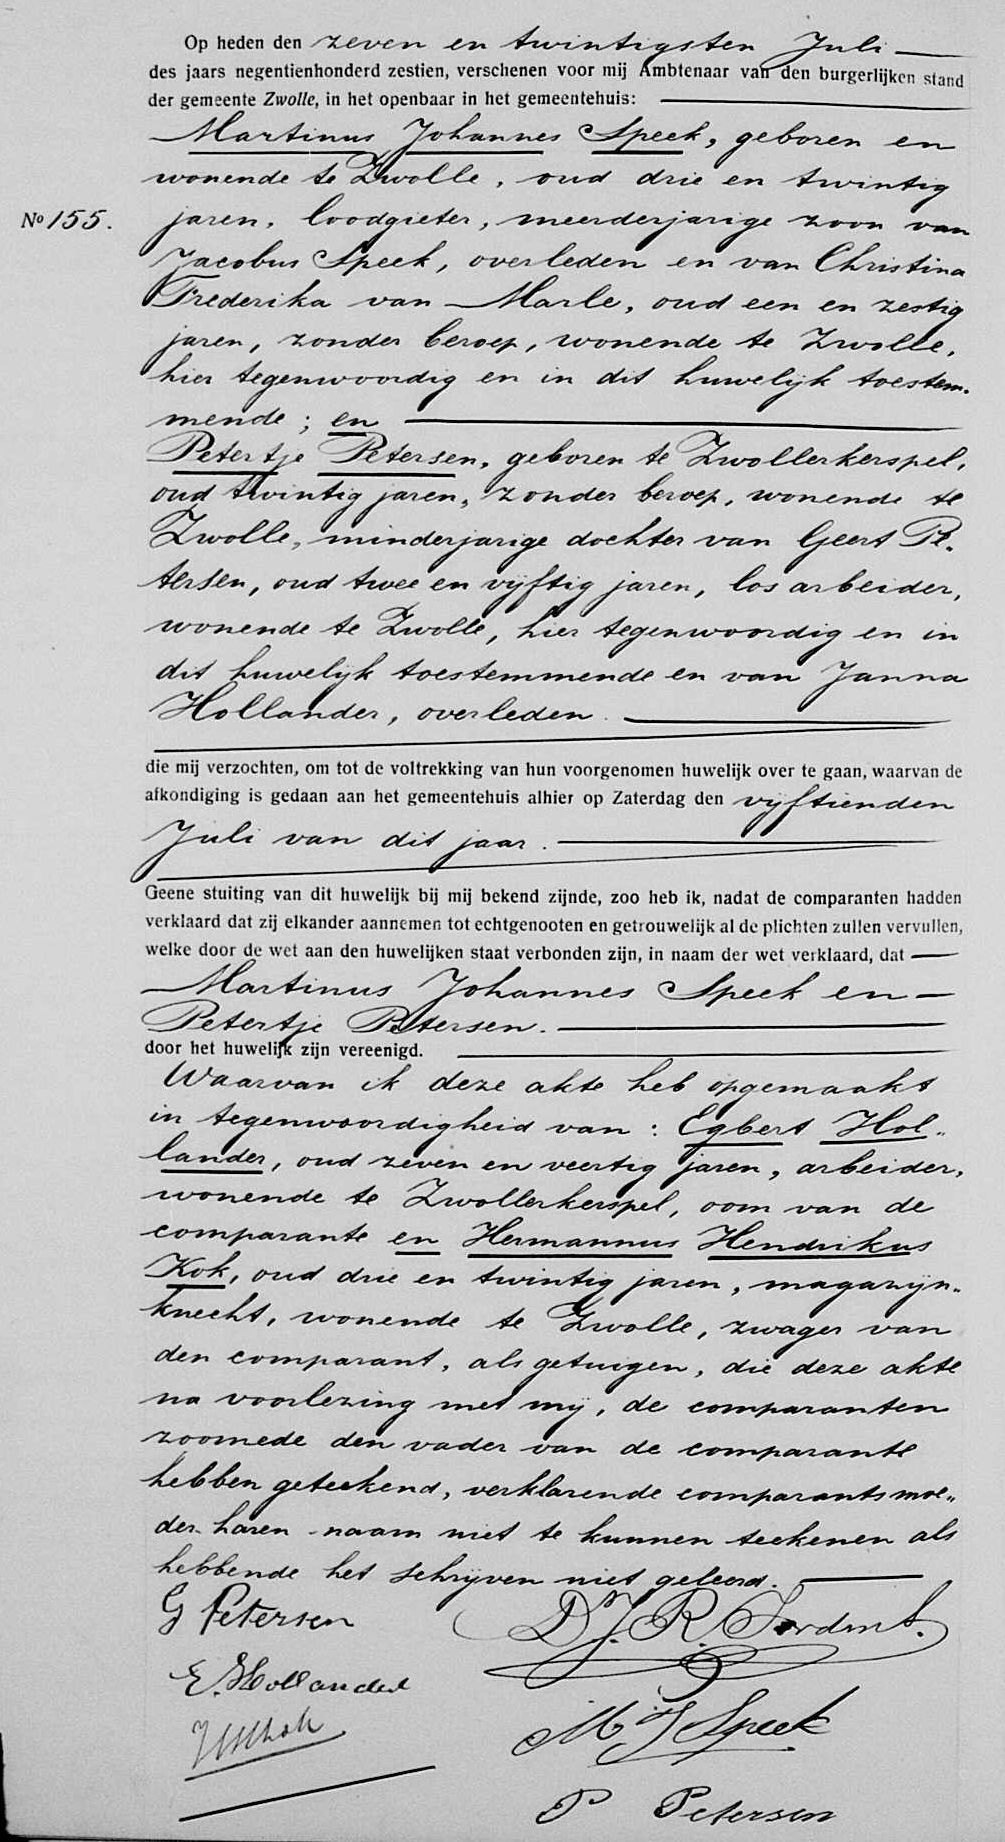 Op heden den zeven en twintigsten Juli
des jaars negentienhonderd zestien, verschenen voor mij Ambtenaar van den burgerlijken stand
der gemeente Zwolle, in het openbaar in het gemeentehuis:
Martinus Johannes Speek, geboren en
wonende te Zwolle, oud drie en twintig
No 155.
jaren, loodgieter, meerderjarige zoon van
Jacobus Speek, overleden en van Christina
Frederika van Marle, oud een en zestig
jaren, zonder beroep, wonende te Zwolle,
hier tegenwoordig en in dit huwelijk toestem-
mende; en
Petertje Petersen, geboren te Zwollerkerspel,
oud twintig jaren, zonder beroep, wonende te
Zwolle, minderjarige dochter van Geert Pe-
tersen, oud twee en vijftig jaren, los arbeider,
wonende te Zwolle, hier tegenwoordig en in
dit huwelijk toestemmende en van Janna
Hollander, overleden.
die mij verzochten, om tot de voltrekking van hun voorgenomen huwelijk over te gaan, waarvan de
afkondiging is gedaan aan het gemeentehuis alhier op Zaterdag den vijftienden
Juli van dit jaar.
Geene stuiting van dit huwelijk bij mij bekend zijnde, zoo heb ik, nadat de comparanten hadden
verklaard dat zij elkander aannemen tot echtgenooten en getrouwelijk al de plichten zullen vervullen,
welke door de wet aan den huwelijken staat verbonden zijn, in naam der wet verklaard, dat
Martinus Johannes Speek en
Petertje Petersen.
door het huwelijk zijn vereenigd.
Waarvan ik deze akte heb opgemaakt
in tegenwoordigheid van: Egbert Hol-
lander, oud zeven en veertig jaren, arbeider,
wonende te Zwollerkerspel, oom van de
comparante en Hermannus Hendrikus
Kok, oud drie en twintig jaren, magazijn-
knecht, wonende te Zwolle, zwager van
den comparant, als getuigen, die deze akte
na voorlezing met mij, de comparanten
zoomede den vader van de comparante
hebben geteekend, verklarende comparants moe-
der haren naam niet te kunnen teekenen als
hebbende het schrijven niet geleerd.
G Petersen
E. Hollander
M J Speek
P Petersen